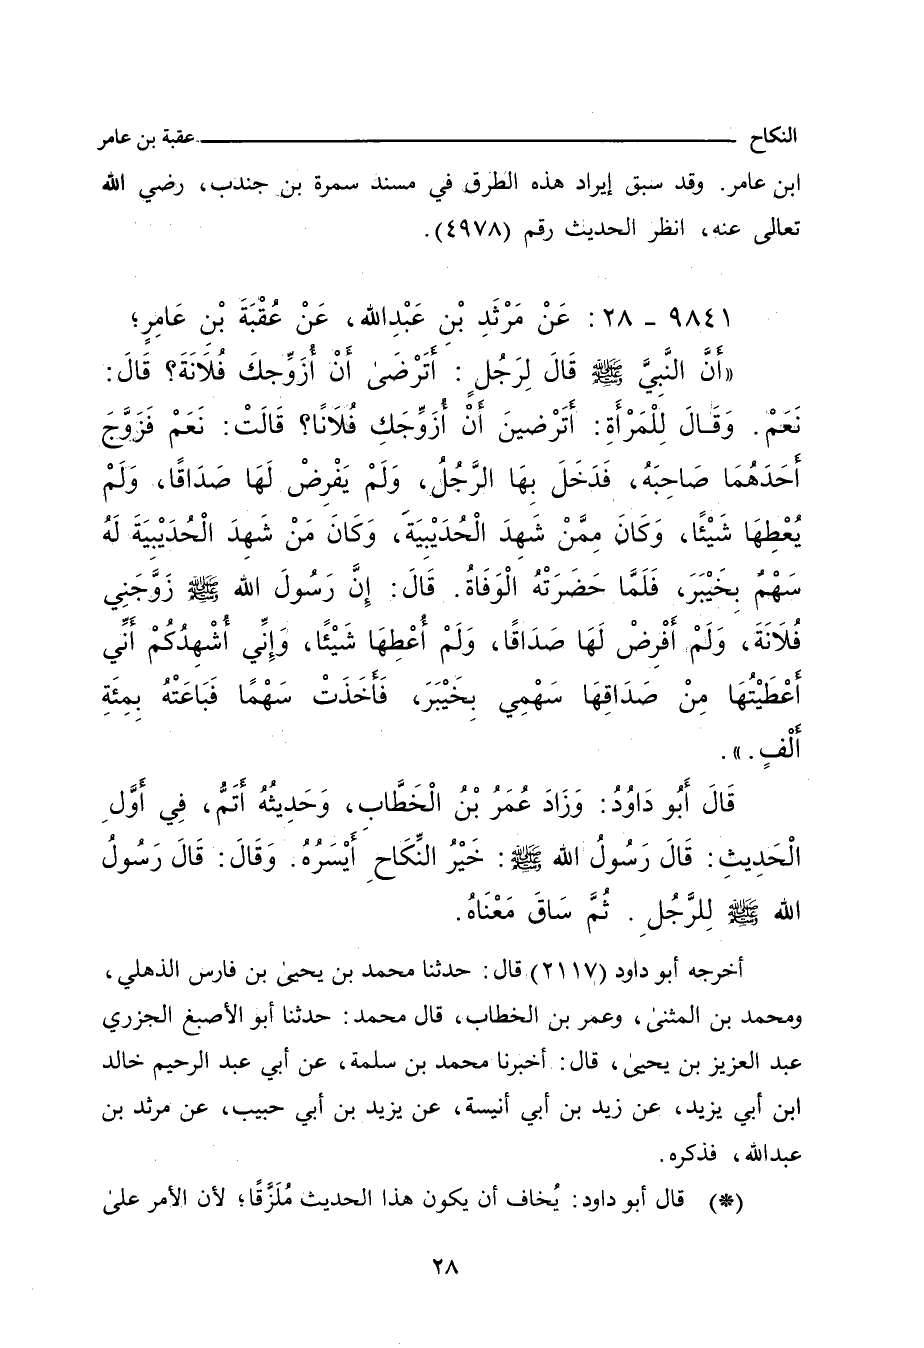 النكاح ــــــــــــــــــــ عقبة بن عامر
ابن عامر. وقد سبق إيراد هذه الطرق في مسند سمرة بن جندب، رضي الله
تعالى عنه، انظر الحديث رقم (٤٩٧٨).
٩٨٤١ - ٢٨: عَنْ مَرْثَدِ بْنِ عَبْدِالله، عَنْ عُقْبَةَ بْنِ عَامِرٍ؛
«أَنَّ النَّبِيَّ ﷺ قَالَ لِرَجُلٍ: أَتَرْضَىٰ أَنْ أُزَوِّجَكَ فُلَانَةَ؟ قَالَ:
نَعَمْ. وَقَالَ لِلْمَرْأَةِ: أَتَرْضِينَ أَنْ أُزَوِّجَكِ فُلَانًا؟ قَالَتْ: نَعَمْ فَزَوَّجَ
أَحَدَهُمَا صَاحِبَهُ، فَدَخَلَ بِهَا الرَّجُلُ، وَلَمْ يَفْرِضْ لَهَا صَدَاقًا، وَلَمْ
يُعْطِهَا شَيْئًا، وَكَانَ مِمَّنْ شَهِدَ الْحُدَيْبِيَةَ، وَكَانَ مَنْ شَهِدَ الْحُدَيْبِيَةَ لَهُ
سَهْمٌ بِخَيْبَرَ، فَلَمَّا حَضَرَتْهُ الْوَفَاةُ. قَالَ: إِنَّ رَسُولَ الله ﷺ زَوَّجَنِي
فُلَانَةَ، وَلَمْ أَفْرِضْ لَهَا صَدَاقًا، وَلَمْ أُعْطِهَا شَيْئًا، وَإِنِّي أُشْهِدُكُمْ أَنِّي
أَعْطَيْتُهَا مِنْ صَدَاقِهَا سَهْمِي بِخَيْبَرَ، فَأَخَذَتْ سَهْمًا فَبَاعَتْهُ بِمِئَةِ
أَلْفٍ.».
قَالَ أَبُو دَاوُدَ: وَزَادَ عُمَرُ بْنُ الْخَطَّابِ، وَحَدِيثُهُ أَتَمُّ، فِي أَوَّلِ
الْحَدِيثِ: قَالَ رَسُولُ الله ﷺ: خَيْرُ النِّكَاحِ أَيْسَرُهُ. وَقَالَ: قَالَ رَسُولُ
الله ﷺ لِلرَّجُلِ. ثُمَّ سَاقَ مَعْنَاهُ.
أخرجه أبو داود (٢١١٧) قال: حدثنا محمد بن يحيىٰ بن فارس الذهلي،
ومحمد بن المثنىٰ، وعمر بن الخطاب، قال محمد: حدثنا أبو الأصبغ الجزري
عبد العزيز بن يحيىٰ، قال: أخبرنا محمد بن سلمة، عن أبي عبد الرحيم خالد
ابن أبي يزيد، عن زيد بن أبي أنيسة، عن يزيد بن أبي حبيب، عن مرثد بن
عبدالله، فذكره.
(*) قال أبو داود: يُخاف أن يكون هذا الحديث مُلَزَّقًا؛ لأن الأمر علىٰ
٢٨